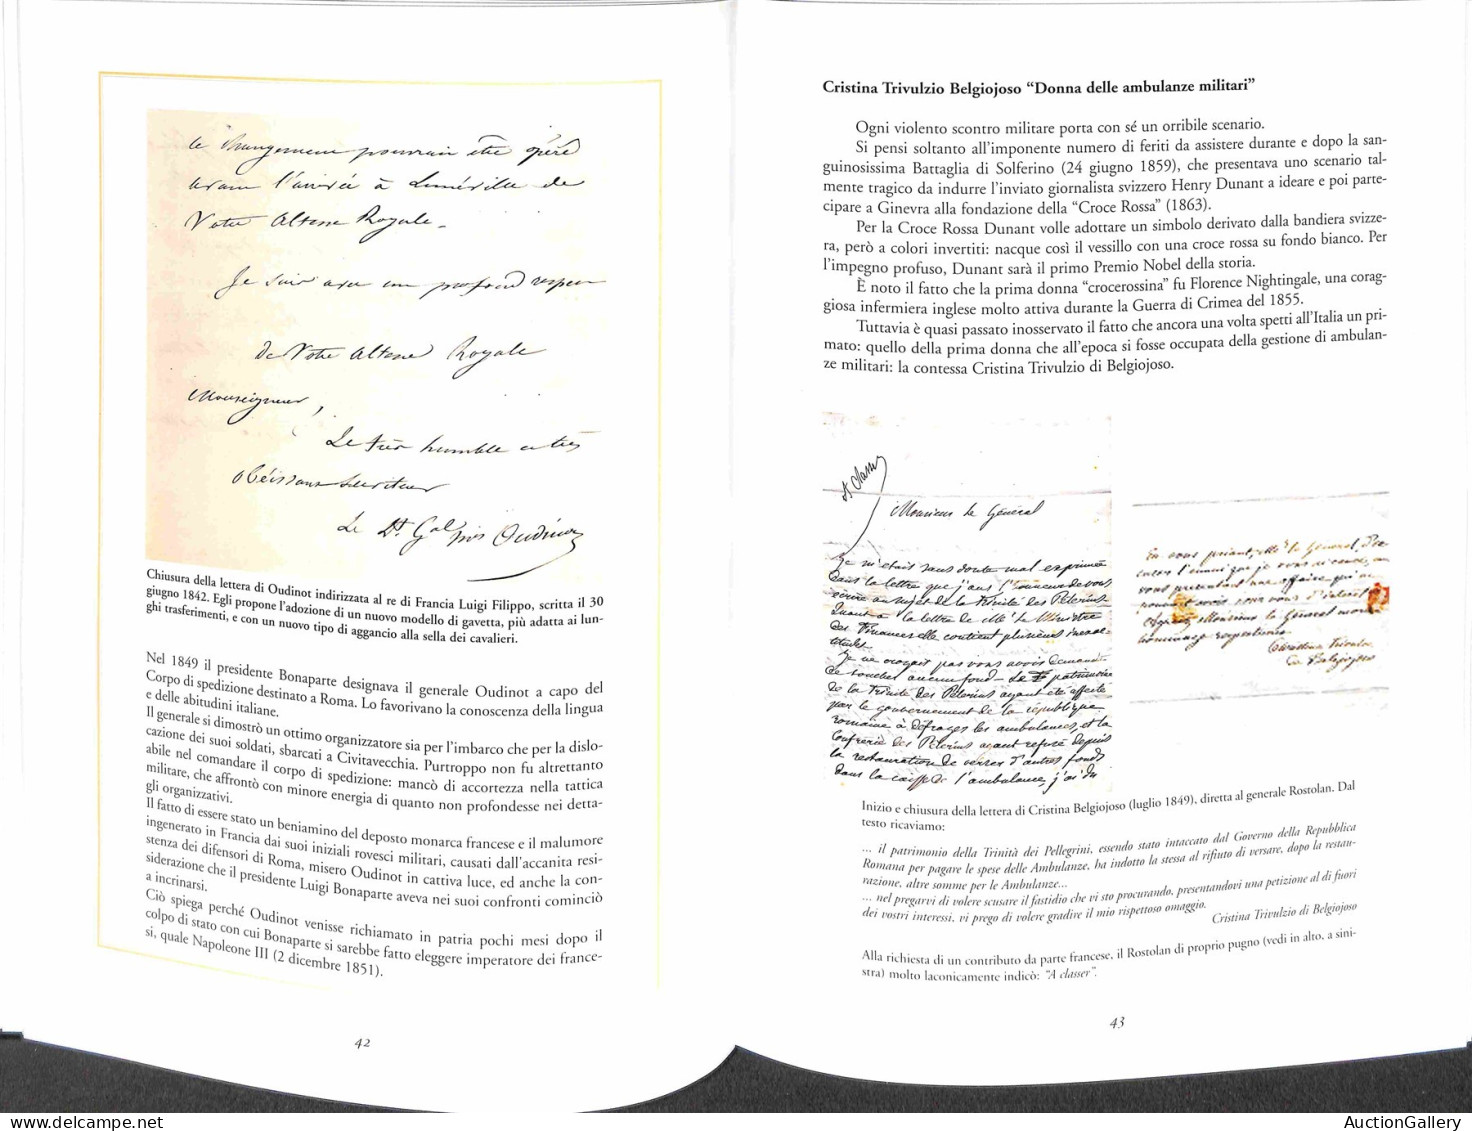 le changement pourrait être opéré
avant l'arrivée à Lunéville de
Votre Altesse Royale.
Je suis avec un profond respect
de Votre Altesse Royale
Monseigneur,
Le très humble et très
obéissant serviteur
Le Gal Oudinot
Chiusura della lettera di Oudinot indirizzata al re di Francia Luigi Filippo, scritta il 30
giugno 1842. Egli propone l'adozione di un nuovo modello di gavetta, più adatta ai lun-
ghi trasferimenti, e con un nuovo tipo di aggancio alla sella dei cavalieri.
Nel 1849 il presidente Bonaparte designava il generale Oudinot a capo del
Corpo di spedizione destinato a Roma. Lo favorivano la conoscenza della lingua
e delle abitudini italiane.
Il generale si dimostrò un ottimo organizzatore sia per l'imbarco che per la dislo-
cazione dei suoi soldati, sbarcati a Civitavecchia. Purtroppo non fu altrettanto
abile nel comandare il corpo di spedizione: mancò di accortezza nella tattica
militare, che affrontò con minore energia di quanto non profondesse nei detta-
gli organizzativi.
Il fatto di essere stato un beniamino del deposto monarca francese e il malumore
ingenerato in Francia dai suoi iniziali rovesci militari, causati dall'accanita resi-
stenza dei difensori di Roma, misero Oudinot in cattiva luce, ed anche la con-
siderazione che il presidente Luigi Bonaparte aveva nei suoi confronti cominciò
a incrinarsi.
Ciò spiega perché Oudinot venisse richiamato in patria pochi mesi dopo il
colpo di stato con cui Bonaparte si sarebbe fatto eleggere imperatore dei france-
si, quale Napoleone III (2 dicembre 1851).
42
Cristina Trivulzio Belgiojoso “Donna delle ambulanze militari”
Ogni violento scontro militare porta con sé un orribile scenario.
Si pensi soltanto all'imponente numero di feriti da assistere durante e dopo la san-
guinosissima Battaglia di Solferino (24 giugno 1859), che presentava uno scenario tal-
mente tragico da indurre l'inviato giornalista svizzero Henry Dunant a ideare e poi parte-
cipare a Ginevra alla fondazione della “Croce Rossa” (1863).
Per la Croce Rossa Dunant volle adottare un simbolo derivato dalla bandiera svizze-
ra, però a colori invertiti: nacque così il vessillo con una croce rossa su fondo bianco. Per
l'impegno profuso, Dunant sarà il primo Premio Nobel della storia.
È noto il fatto che la prima donna “crocerossina” fu Florence Nightingale, una corag-
giosa infermiera inglese molto attiva durante la Guerra di Crimea del 1855.
Tuttavia è quasi passato inosservato il fatto che ancora una volta spetti all'Italia un pri-
mato: quello della prima donna che all'epoca si fosse occupata della gestione di ambulan-
ze militari: la contessa Cristina Trivulzio di Belgiojoso.
A classer
Monsieur le Général
Je m'étais sans doute mal exprimée
dans la lettre que j'ai eu l'honneur de vous
écrire au sujet de la Trinité des Pélerins.
Quant à la lettre de Mr le Ministre
des Finances elle contient plusieurs inexac-
titudes.
Je ne croyait pas vous avoir demandé
de toucher aucun fond. Le patrimoine
de la Trinité des Pélerins ayant été affecté
par le gouvernement de la république
romaine à défrayer les ambulances, et la
Confrérie des Pélerins ayant refusé depuis
la restauration de verser d'autres fonds
dans la caisse de l'ambulance, j'ai du
En vous priant, Mr le Général, d'ex-
cuser l'ennui que je vous ai causé, en
vous présentant une affaire qui ne
Agréez Monsieur le Général mon
hommage respectueux
Christine Trivulce
de Belgiojoso
Inizio e chiusura della lettera di Cristina Belgiojoso (luglio 1849), diretta al generale Rostolan. Dal
testo ricaviamo:
... il patrimonio della Trinità dei Pellegrini, essendo stato intaccato dal Governo della Repubblica
Romana per pagare le spese delle Ambulanze, ha indotto la stessa al rifiuto di versare, dopo la restau-
razione, altre somme per le Ambulanze...
... nel pregarvi di volere scusare il fastidio che vi sto procurando, presentandovi una petizione al di fuori
dei vostri interessi, vi prego di volere gradire il mio rispettoso omaggio.
Cristina Trivulzio di Belgiojoso
Alla richiesta di un contributo da parte francese, il Rostolan di proprio pugno (vedi in alto, a sini-
stra) molto laconicamente indicò: “A classer”.
43
AuctionGallery